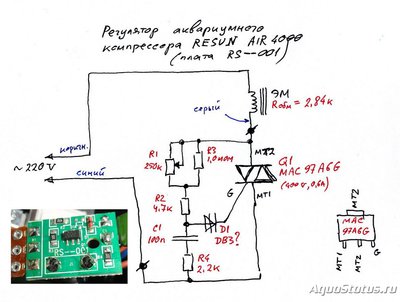 Регулятор аквариумного
компрессора RESUN AIR 4000
(плата RS--001)
ЭМ
Rобм = 2,84к
серый
коричн.
~ 220 V
синий
R1
250к
R3
1,0мом
MT2
Q1
MAC 97A6G
(400V, 0,6A)
G
MT1
R2
4.7к
C1
100n
D1
DB3?
R4
2.2к
MT2
MAC
97A6G
MT1
MT2
G
RS--001
AquaStatus.ru